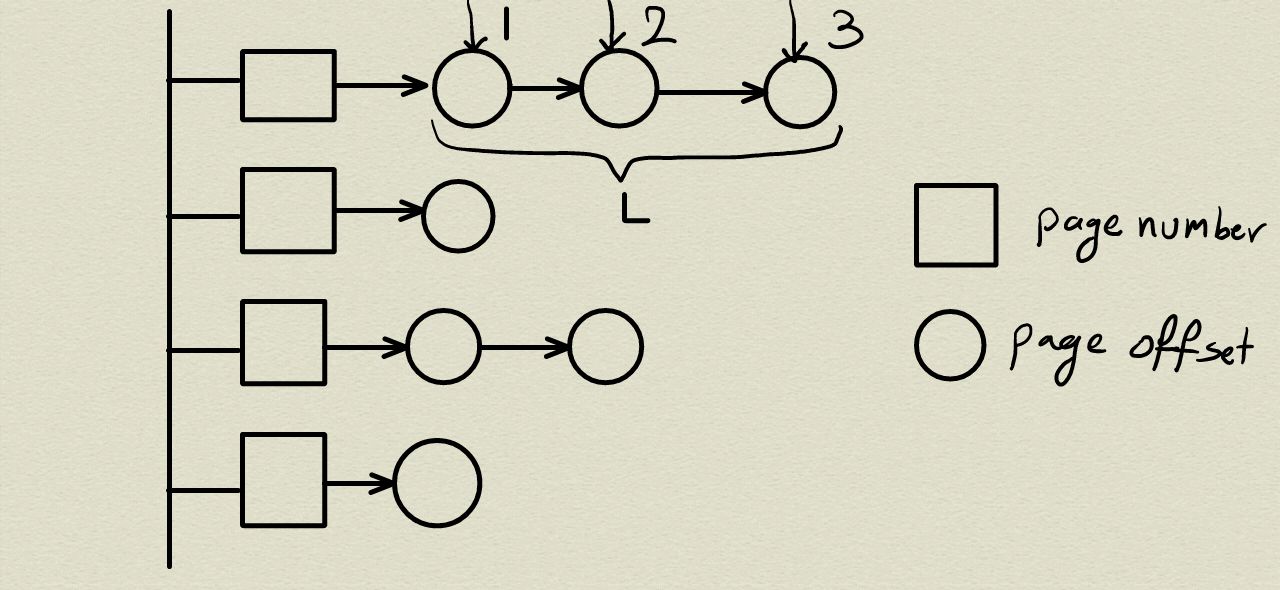 1 2 3
L
page number
page offset